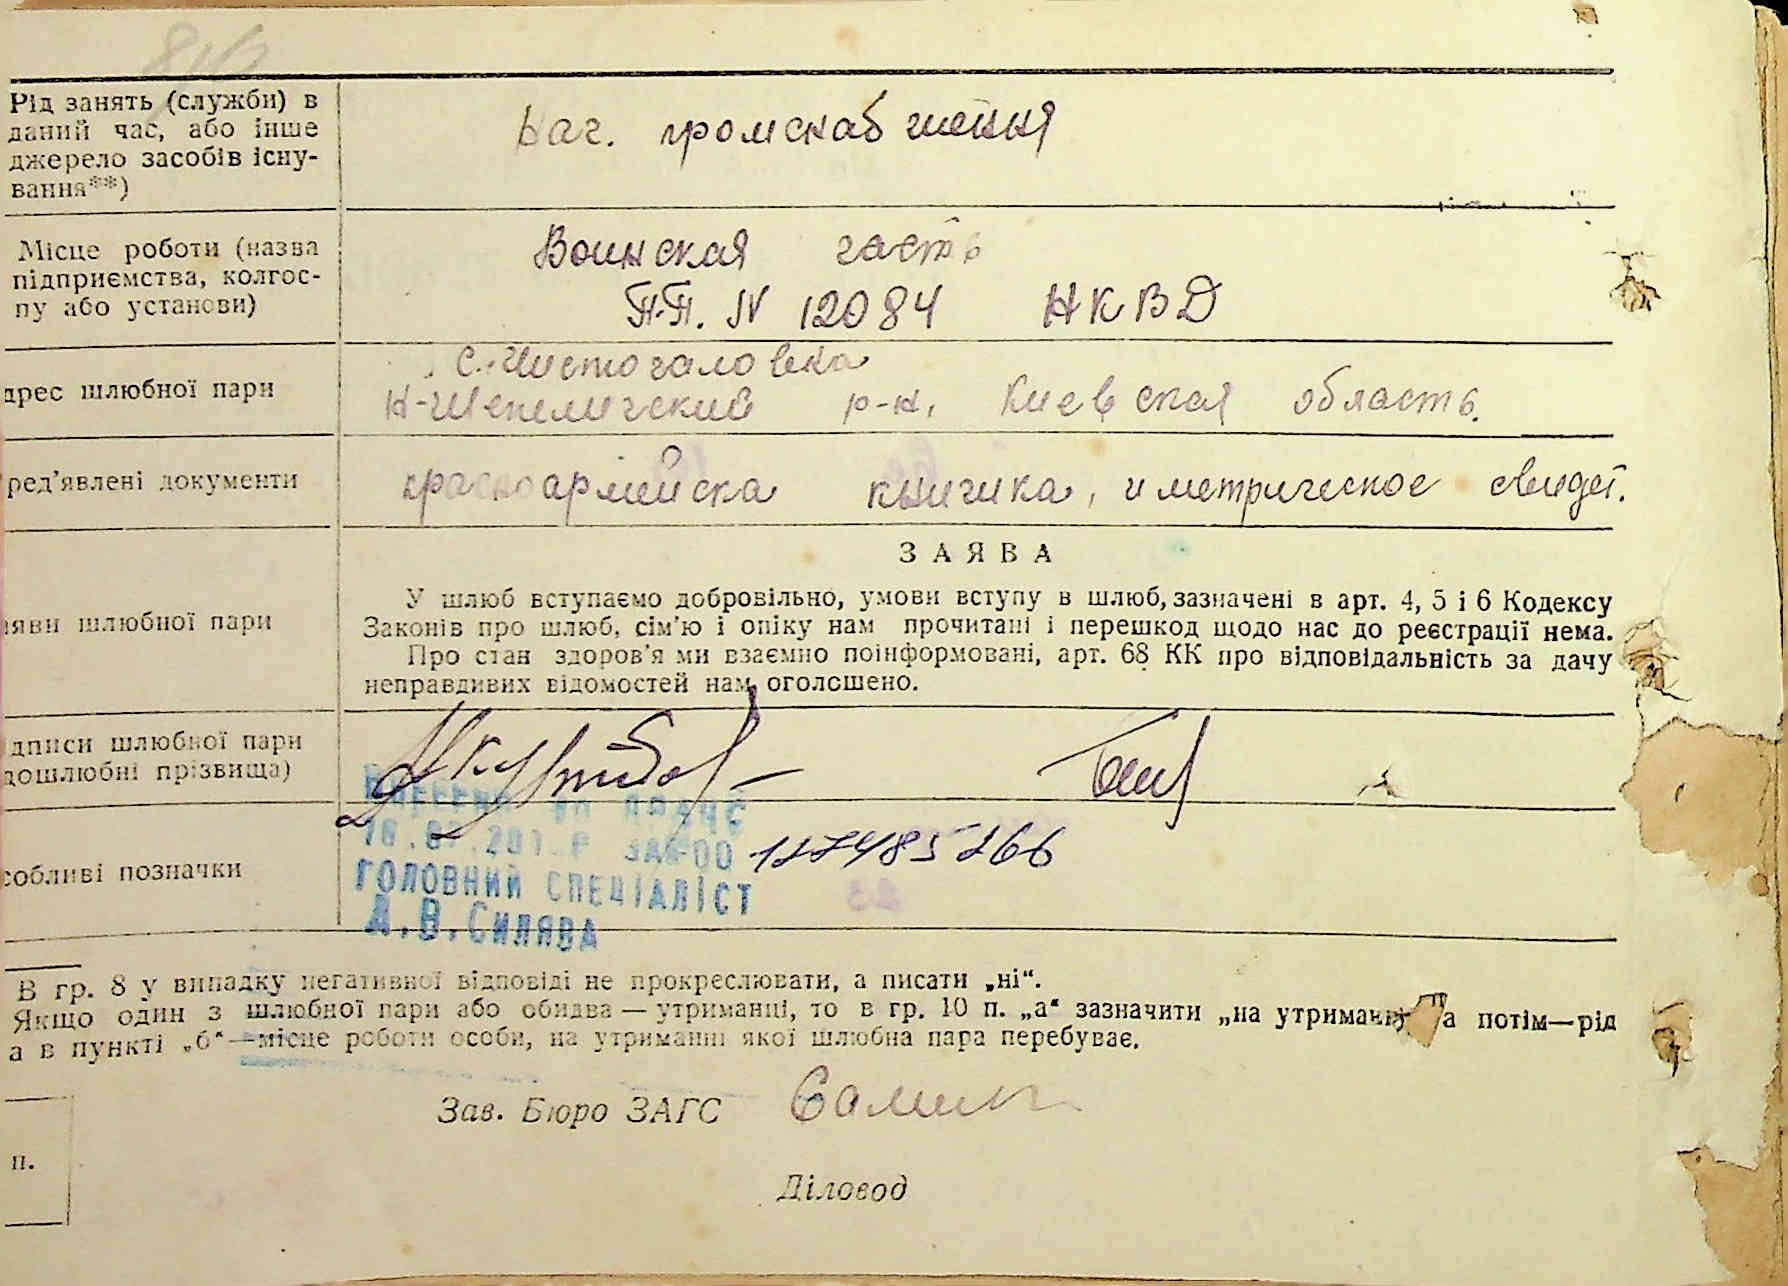 Рід занять (служби) в
даний час, або інше
джерело засобів існу-
вання**)
Нач. промснабжения
Місце роботи (назва
підприємства, колгос-
пу або установи)
Воинская часть
П.П. N 12084 НКВД
дрес шлюбної пари
с. Чистогаловка
К-Шепеличский р-н, Киевская область.
ред’явлені документи
красноармейска книжка, и метрическое свидет.
ЗАЯВА
аяви шлюбної пари
У шлюб вступаємо добровільно, умови вступу в шлюб, зазначені в арт. 4, 5 і 6 Кодексу
Законів про шлюб, сім’ю і опіку нам прочитані і перешкод щодо нас до реєстрації нема.
Про стан здоров’я ми взаємно поінформовані, арт. 68 КК про відповідальність за дачу
неправдивих відомостей нам оголошено.
ідписи шлюбної пари
дошлюбні прізвища)
собливі позначки
Внесено до ДРАЦС
ЗА№00 127485266
ГОЛОВНИЙ СПЕЦІАЛІСТ
А.В.СИЛЯВА
В гр. 8 у випадку негативної відповіді не прокреслювати, а писати „ні“.
Якщо один з шлюбної пари або обидва — утриманці, то в гр. 10 п. „а“ зазначити „на утриманні а потім—рід
а в пункті „б“—місце роботи особи, на утриманні якої шлюбна пара перебуває.
Зав. Бюро ЗАГС
п.
Діловод